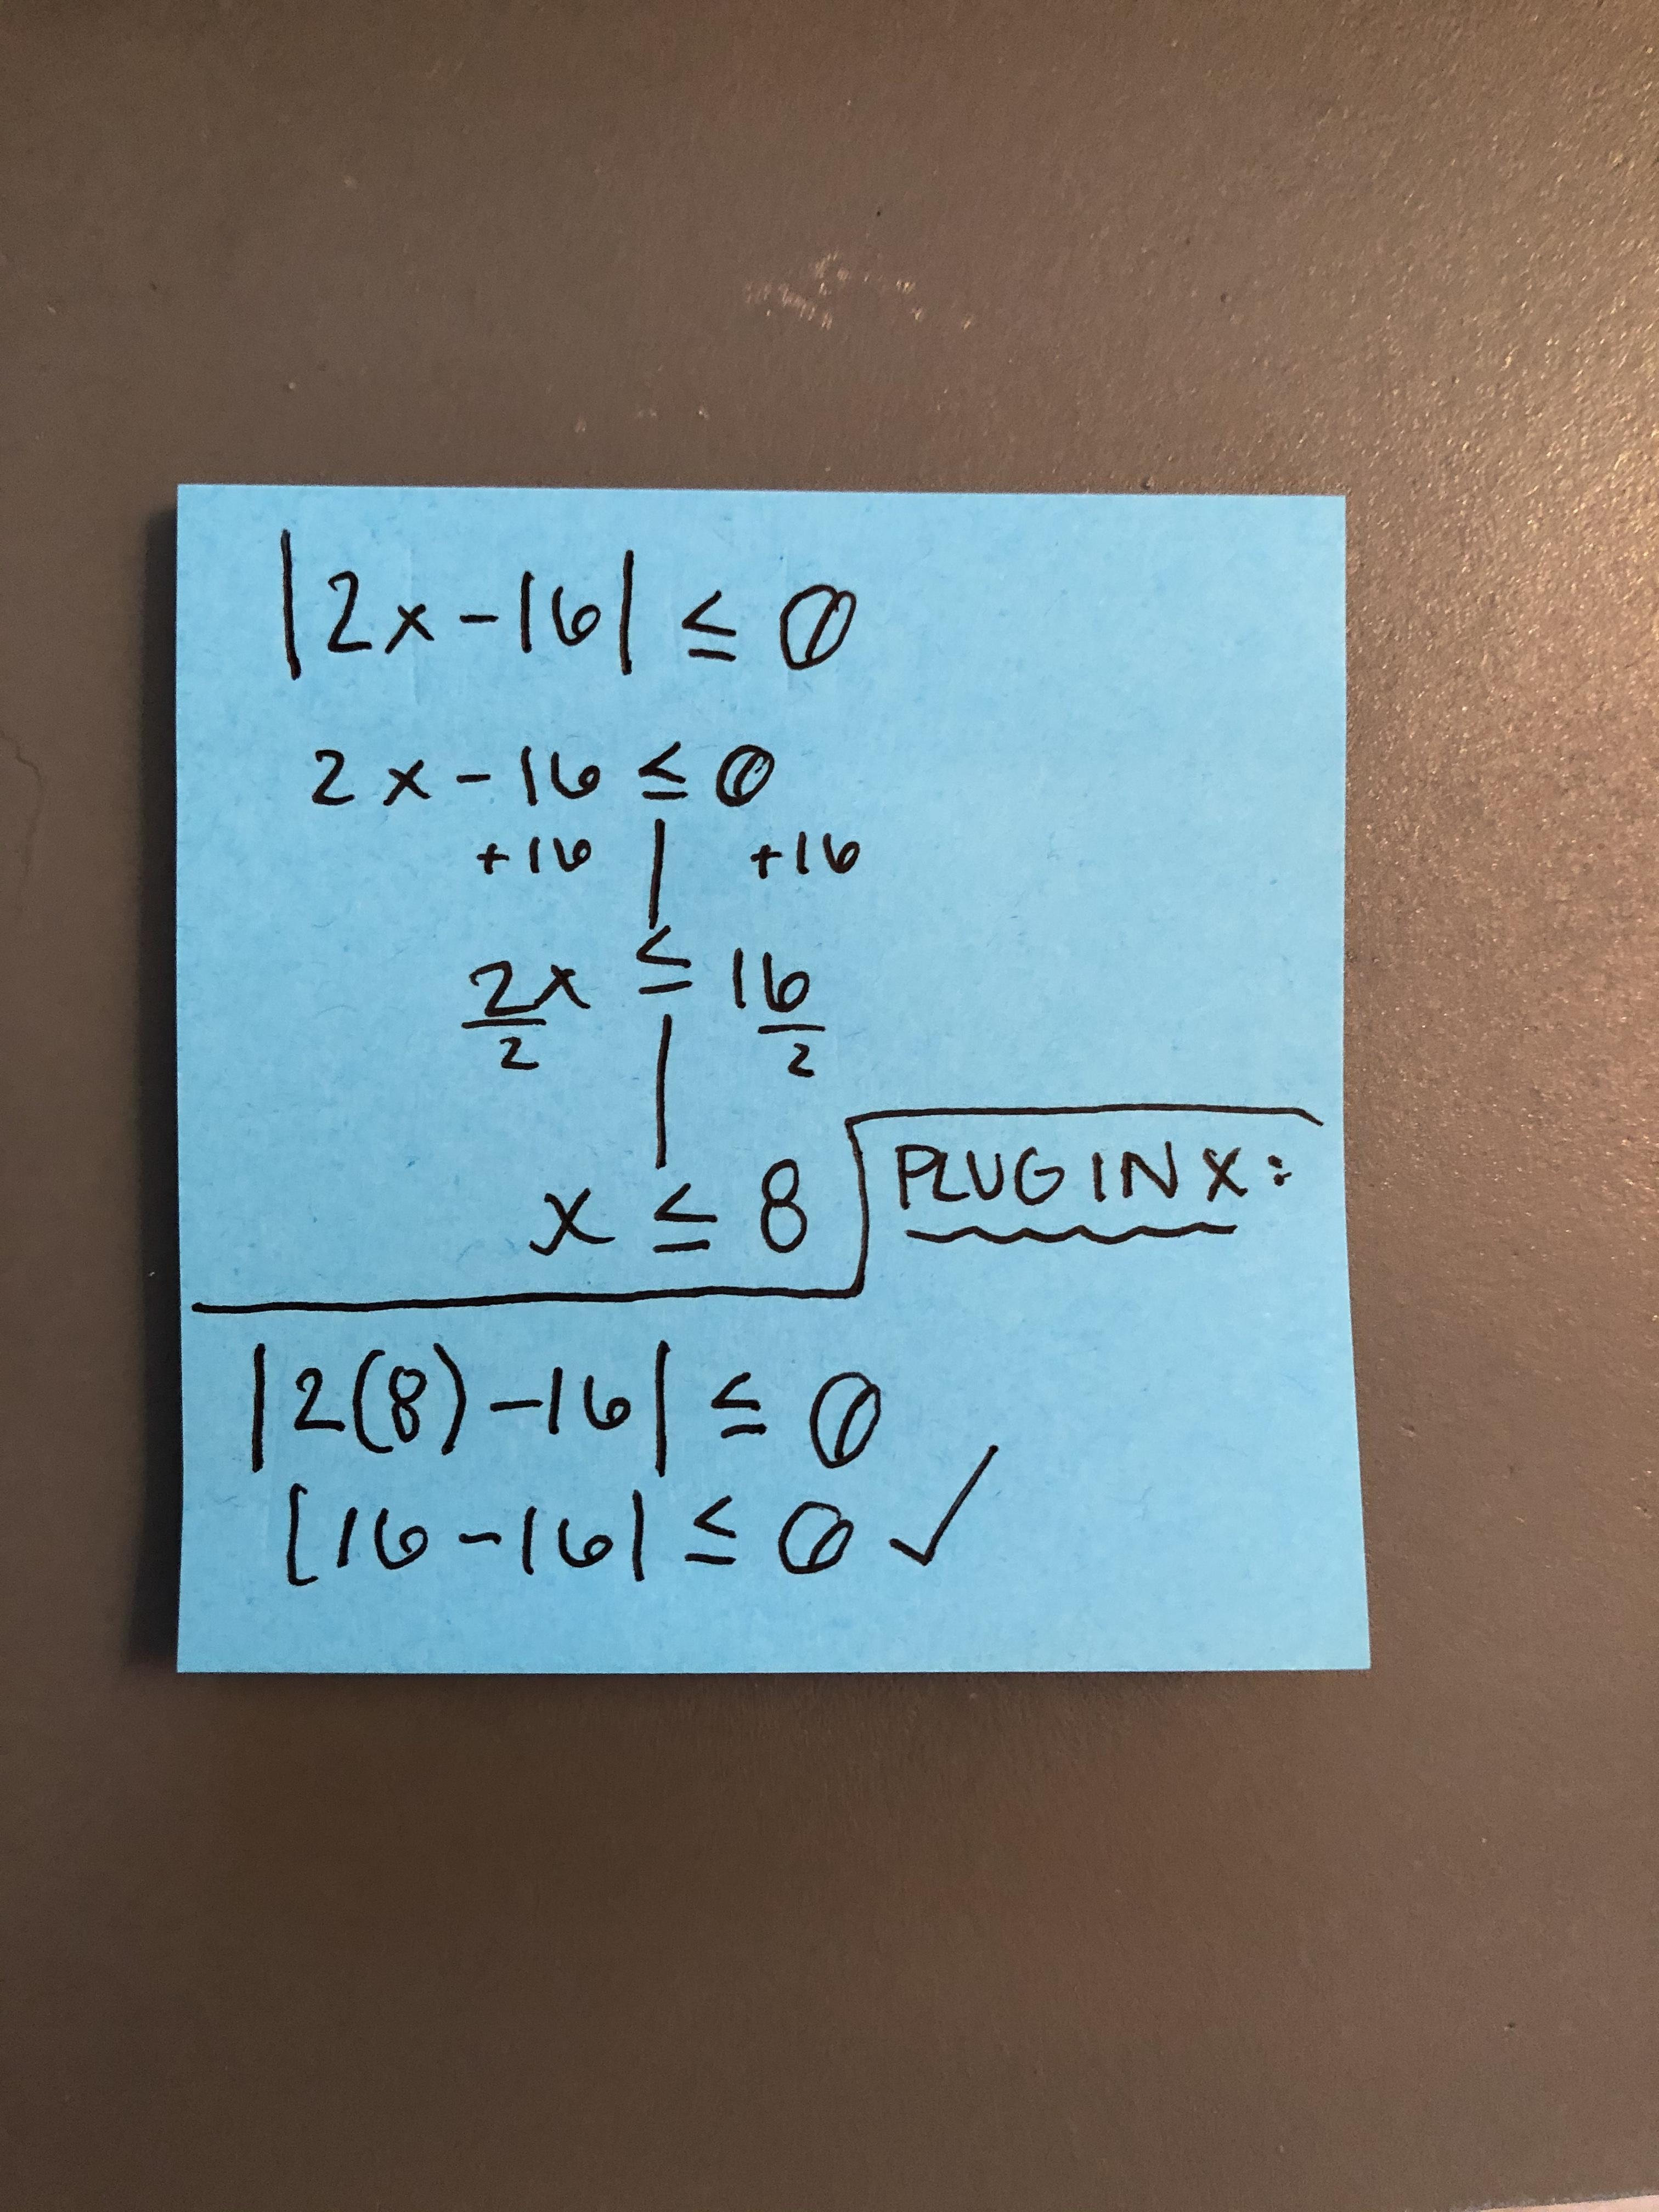 |2x-16| ≤ 0
2x-16 ≤ 0
+16 | +16
2x ≤ 16
2 | 2
x ≤ 8
PLUG IN X:
|2(8)-16| ≤ 0
[16-16| ≤ 0 ✓